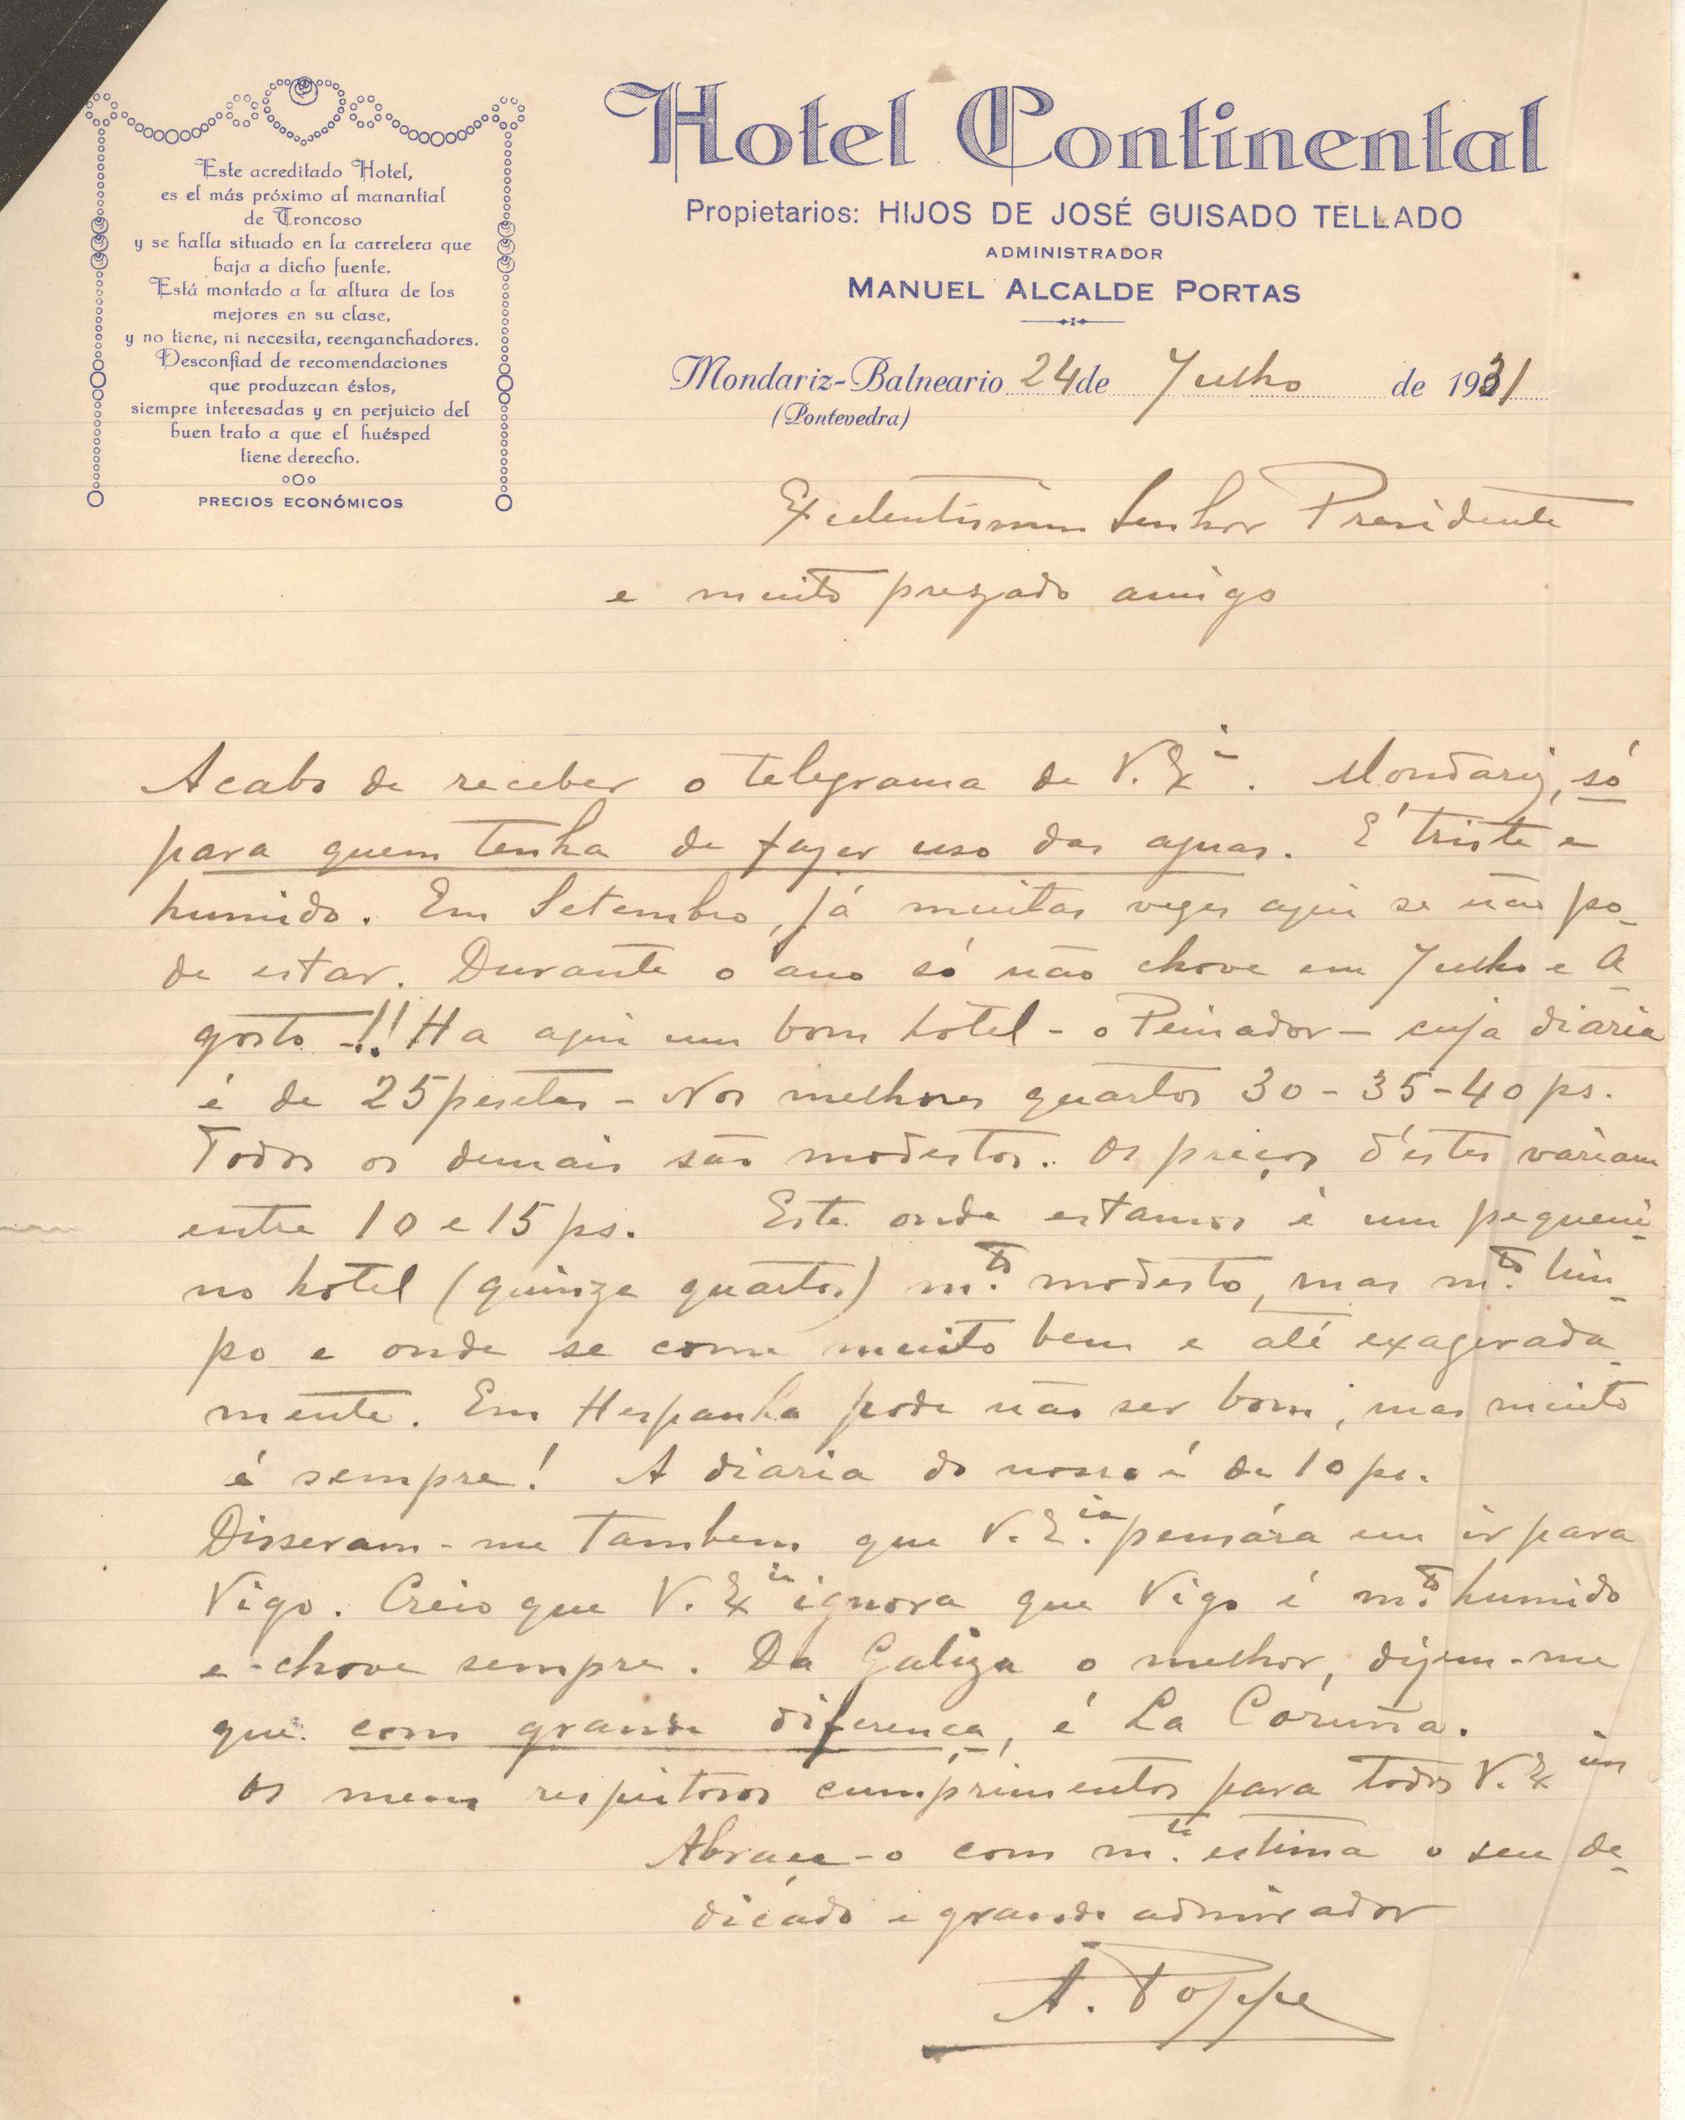 Este acreditado Hotel,
es el más próximo al manantial
de Troncoso
y se halla situado en la carretera que
baja a dicho fuente.
Está montado a la altura de los
mejores en su clase,
y no tiene, ni necesita, reenganchadores.
Desconfiad de recomendaciones
que produzcan éstos,
siempre interesadas y en perjuicio del
buen trato a que el huésped
tiene derecho.
PRECIOS ECONÓMICOS
Hotel Continental
Propietarios: HIJOS DE JOSÉ GUISADO TELLADO
ADMINISTRADOR
MANUEL ALCALDE PORTAS
Mondariz-Balneario 24 de Julho de 1931
(Pontevedra)
Excelentissimo Senhor Presidente
e muito prezado amigo
Acabo de receber o telegrama de V. Exᵃ. Mondariz, só
para quem tenha de fazer uso das aguas. É triste e
humido. Em Setembro, já muitas vezes aqui se não po-
de estar. Durante o ano só não chove em Julho e A-
gosto-!! Ha aqui um bom hotel - o Peinador - cuja diaria
é de 25 pesetas - Nos melhores quartos 30 - 35 - 40 ps.
Todos os demais são modestos. Os preços d'estes variam
entre 10 e 15 ps. Este onde estamos é um pequeni-
no hotel (quinze quartos) m.ᵗᵒ modesto, mas m.ᵗᵒ lim-
po e onde se come muito bem e até exagerada-
mente. Em Hespanha pode não ser bom, mas muito
é sempre! A diaria do nosso é de 10 ps.
Disseram-me tambem que V. E.ⁱᵃ pensára em ir para
Vigo. Creio que V. Exⁱᵃ ignora que Vigo é m.ᵗᵒ humido
e chove sempre. Da Galiza o melhor, dizem-me
que com grande diferença, é La Coruña.
Os meus respeitosos cumprimentos para todos V. Exⁱᵃˢ
Abraça-o com m.ᵗᵃ estima o seu de-
dicado e grande admirador
A. Poppe